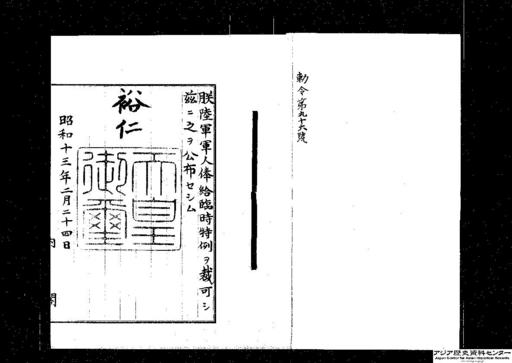 勅令第九十六號
朕陸軍軍人俸給臨時特例ヲ裁可シ
茲ニ之ヲ公布セシム
裕仁
天皇
御璽
昭和十三年二月二十四日
内閣
アジア歴史資料センター
Japan Center for Asian Historical Records